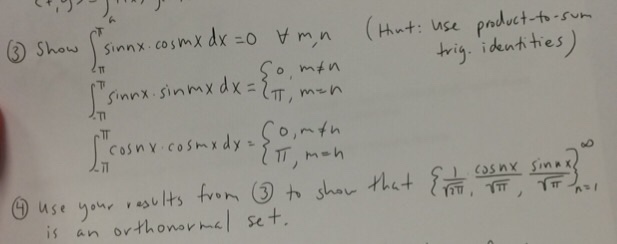 ③ Show ∫_{-π}^{π} sin nx · cos mx dx = 0 ∀ m,n (Hint: Use product-to-sum
trig. identities)
∫_{-π}^{π} sin nx · sin mx dx = { 0, m≠n
π, m=n
∫_{-π}^{π} cos nx · cos mx dx = { 0, m≠n
π, m=n
④ Use your results from ③ to show that { 1/√2π, cos nx/√π, sin nx/√π }_{n=1}^{∞}
is an orthonormal set.